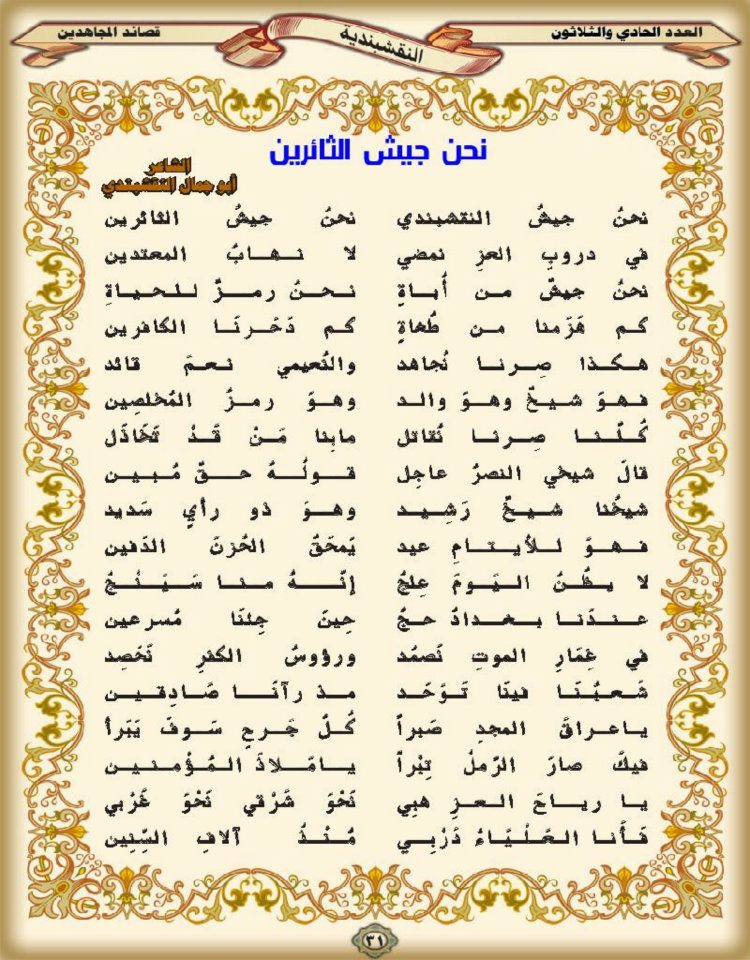 العدد الحادي والثلاثون
النقشبندية
قصائد المجاهدين
نحن جيش الثائرين
الشاعر
أبو جمال النقشبندي
نحنُ جيشُ النقشبندي نحنُ جيشُ الثائرين
في دروبِ العزِ نمضي لا نهابُ المعتدين
نحنُ جيشٌ من أُباةٍ نحنُ رمزٌ للحياةِ
كم هَزَمنا من طُغاةٍ كم دَحَرنَا الكافرين
هكذا صِرنا نُجاهد والنُعيمي نعمَ قائد
فهوَ شيخٌ وهوَ والد وهوَ رمزُ المُخلصِين
كُلّنا صِرنا نُقاتل مابِنا مَنْ قَدْ تَخَاذَل
قالَ شيخي النصرُ عاجِل قولُهُ حقٌ مُبين
شيخُنا شيخٌ رَشِيد وهوَ ذو رأيٍ سَديد
فهوَ للأيتامِ عيد يَمحَقُ الحُزنَ الدَفين
لا يظُنُ اليَومَ عِلجُ إنّهُ منا سَيَنْجُ
عندَنا بغدادُ حجُ حِينَ جِئنَا مُسرعين
في غِمَارِ الموتِ نَصمُد ورؤوسُ الكفرِ نَحَصِد
شَعبُنَا فينَا تَوَحَد مذ رآنَا صَادِقين
ياعراقَ المجدِ صَبراً كُلُ جَرحٍ سَوفَ يَبَرأ
فيكَ صارَ الرّملُ تِبْراً يامَلاذَ المُؤْمنين
يا رياحَ العزِ هبِي نَحْوَ شَرْقي نَحْوَ غَرْبي
فَأَنا العَلْيَاءُ دَرْبِي مُنْذُ آلافِ السِّنِين
٣١